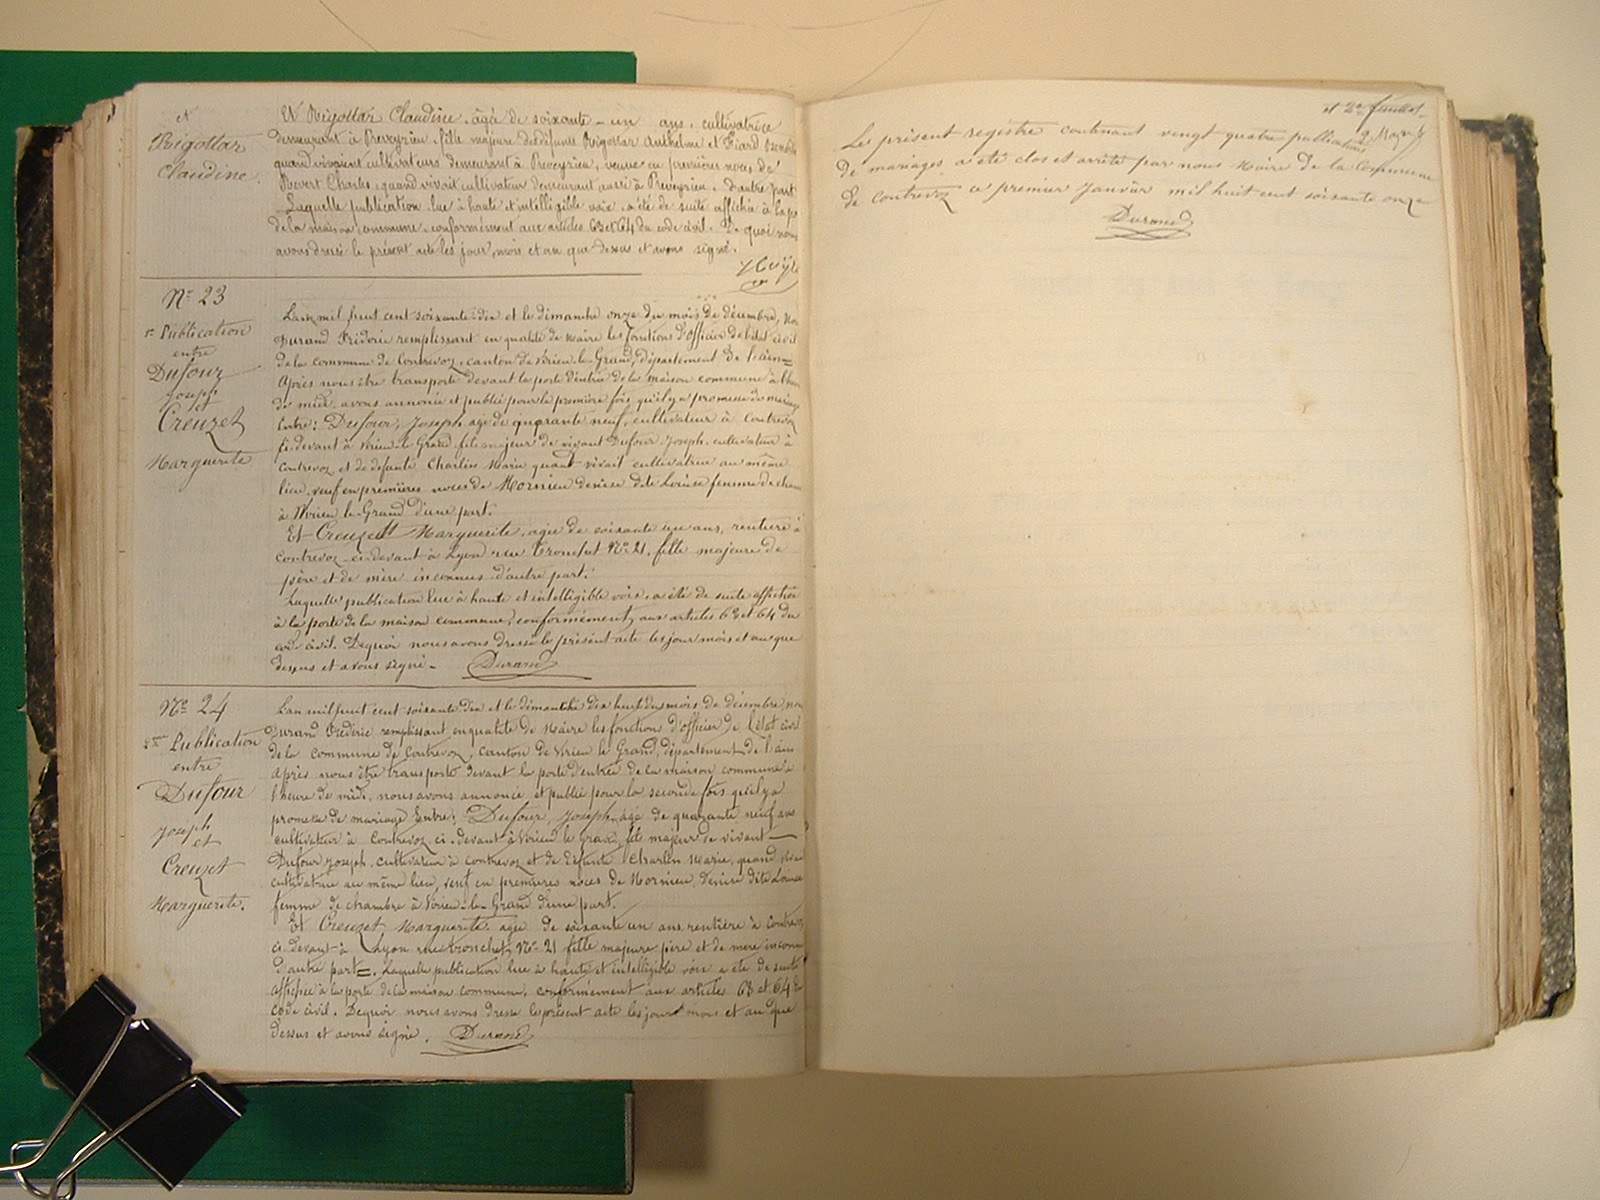 et
Rigottar
Claudine.
Et Rigottar Claudine, âgée de soixante-un ans, cultivatrice
demeurant à Preveyrieu, fille majeure de défunts Rigottar Anthelme et Picard
quand vivaient cultivateurs demeurant à Preveyrieu, veuve en premières noces de
Revert Charles, quand vivait cultivateur demeurant aussi à Preveyrieu, d'autre part
Laquelle publication, lue à haute et intelligible voix, a été de suite affichée à la
de la maison commune, conformément aux articles 63 et 64 du code civil. De quoi nous
avons dressé le présent acte les jour, mois et an que dessus et avons signé.
No 23
1e Publication
entre
Dufour
Joseph
et
Creuzet
Marguerite
L'an mil huit cent soixante-dix et le dimanche onze du mois de décembre, Nous
Durand Frédéric remplissant en qualité de Maire les fonctions d'Officier de l'état civil
de la commune de Contrevoz, canton de Virieu-le-Grand, département de l'ain=
Après nous être transporté devant la porte d'entrée de la maison commune à l'heure
de midi, avons annoncé et publié pour la première fois qu'il y a promesse de mariage
Entre: Dufour, Joseph âgé de quarante neuf, cultivateur à Contrevoz
ci-devant à Virieu-le-Grand, fils majeur de vivant Dufour Joseph, cultivateur à
Contrevoz et de défunte Charlin Marie quand vivait cultivatrice au même
lieu, veuf en premières noces de Mornieu denise dite Louise femme de
à Virieu le-Grand d'une part.
Et Creuzett Marguerite, agée de soixante un ans, rentière à
Contrevoz ci-devant à Lyon rue Tronchet No 21, fille majeure de
père et de mère inconnus d'autre part.
Laquelle publication lue à haute et intelligible voix, a été de suite affichée
à la porte de la maison commune, conformément, aux articles 63 et 64 du
code civil. Dequoi nous avons dressé le présent acte les jour mois et an que
dessus et avons signé - Durand
No 24
2eme Publication
entre
Dufour
Joseph
et
Creuzet
Marguerite.
L'an mil huit cent soixante dix et le dimanche dix huit du mois de décembre, nous
Durand Frédéric remplissant en qualité de Maire les fonctions d'officier de l'état civil
de la commune de Contrevoz, canton de Virieu le Grand, département de l'ain
Après nous être transporté devant la porte d'entrée de la maison commune à
l'heure de midi, nous avons annoncé et publié pour la seconde fois qu'il y a
promesse de mariage Entre: Dufour, Joseph, âgé de quarante neuf ans
cultivateur à Contrevoz, ci-devant à Virieu le Grand, fils majeur de vivant
Dufour Joseph, cultivateur à Contrevoz et de défunte Charlin Marie, quand vivait
cultivatrice au même lieu, veuf en premières noces de Mornieu, Denise dite Louise
femme de chambre à Virieu-le-Grand d'une part.
Et Creuzet Marguerite, agée de soixante un ans, rentière à Contrevoz
ci-devant à Lyon rue tronchet, No 21 fille majeure père et de mère inconnus
d'autre part=. Laquelle publication lue à haute et intelligible voix a été de suite
affichée à la porte de la maison commune, conformément aux articles 63 et 64 du
code civil. Dequoi nous avons dressé le présent acte les jour mois et an que
dessus et avons signé. Durand
et 2e feuillet
Le présent registre contenant vingt quatre publications
de mariages a été clos et arrêté par nous Maire de la Commune
de Contrevoz ce premier Janvier mil huit cent soixante onze
Durand